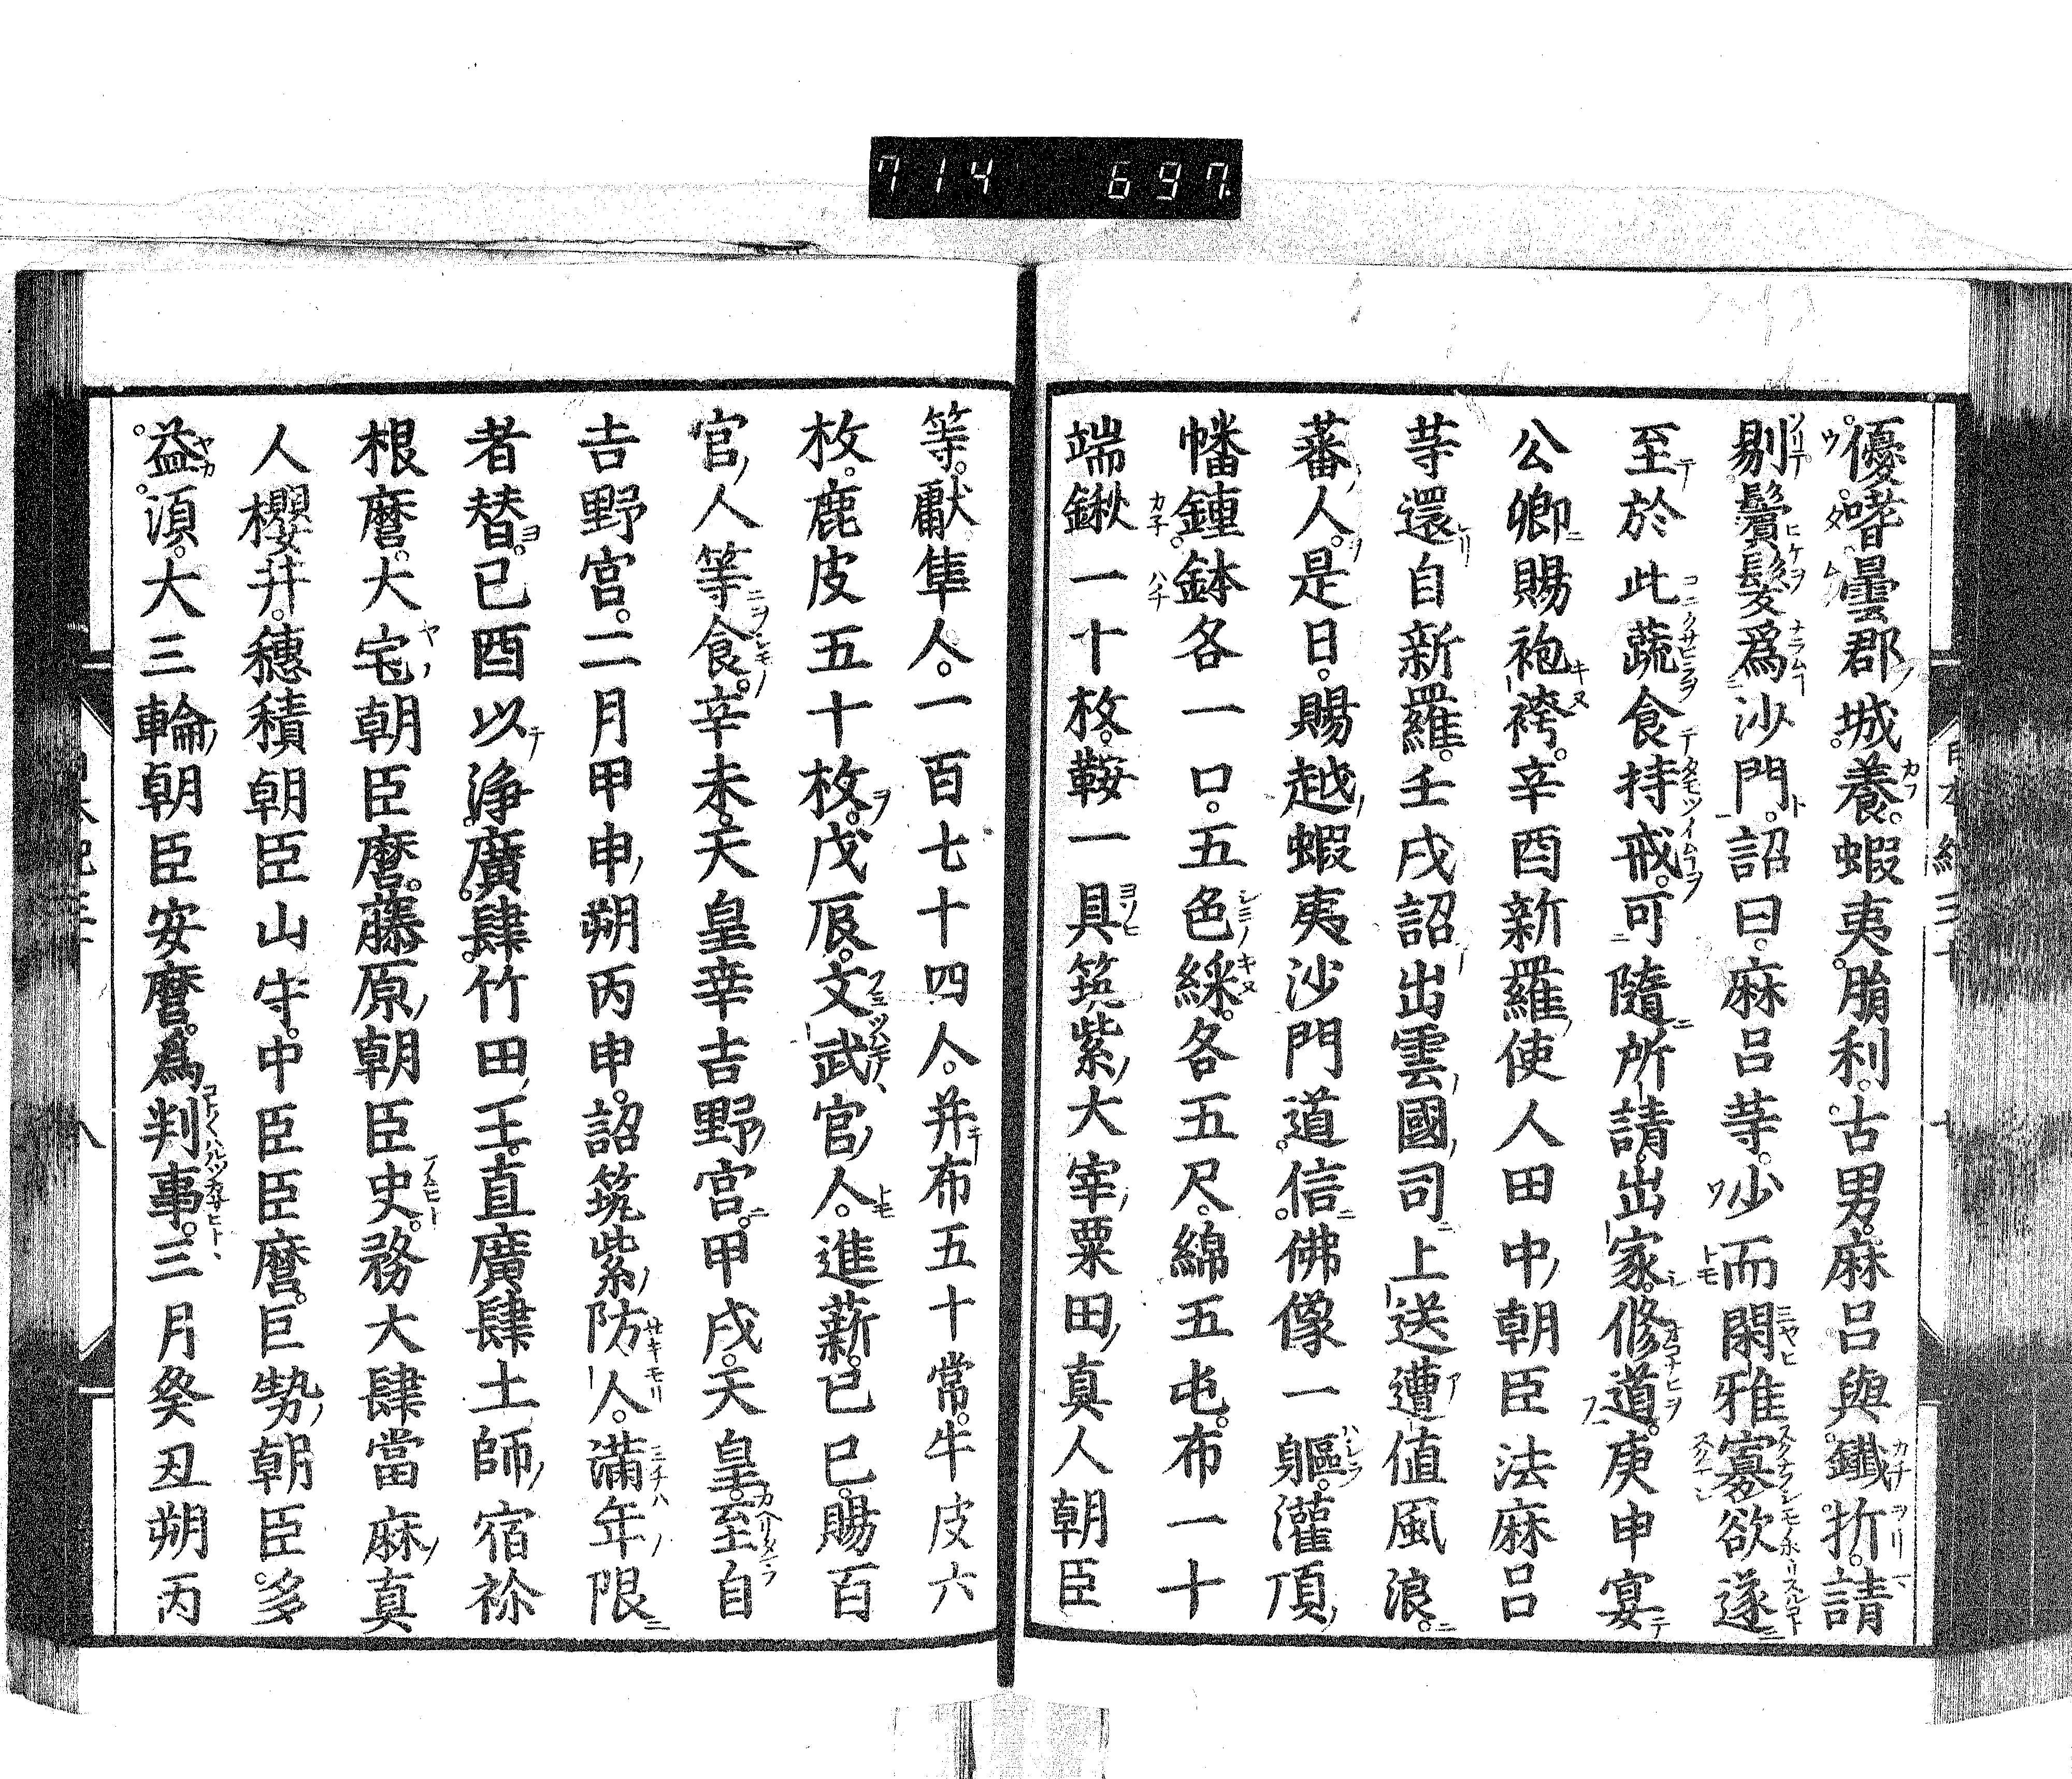 714 697.
優𡁠曇郡城養蝦夷脂利古男麻呂與鐵折請
剔鬢髮爲沙門詔曰麻呂䓁少而閑雅寡欲遂
至於此蔬食持戒可隨所請出家修道庚申宴
公卿賜袍袴辛酉新羅使人田中朝臣法麻呂
䓁還自新羅壬戌詔出雲國司上送遭值風浪
蕃人是日賜越蝦夷沙門道信佛像一軀灌頂
幡鍾鉢各一口五色綵各五尺綿五屯布一十
端鍬一十枚鞍一具筑紫大宰粟田真人朝臣
等獻隼人一百七十四人并布五十常牛皮六
枚鹿皮五十枚戊辰文武官人進薪己巳賜百
官人等食辛未天皇幸吉野宮甲戌天皇至自
吉野宮二月甲申朔丙申詔筑紫防人滿年限
者替己酉以淨廣肆竹田王直廣肆土師宿祢
根麿大宅朝臣麿藤原朝臣史務大肆當麻真
人櫻井穗積朝臣山守中臣臣麿巨勢朝臣多
益湏大三輪朝臣安麿爲判事三月癸丑朔丙
八